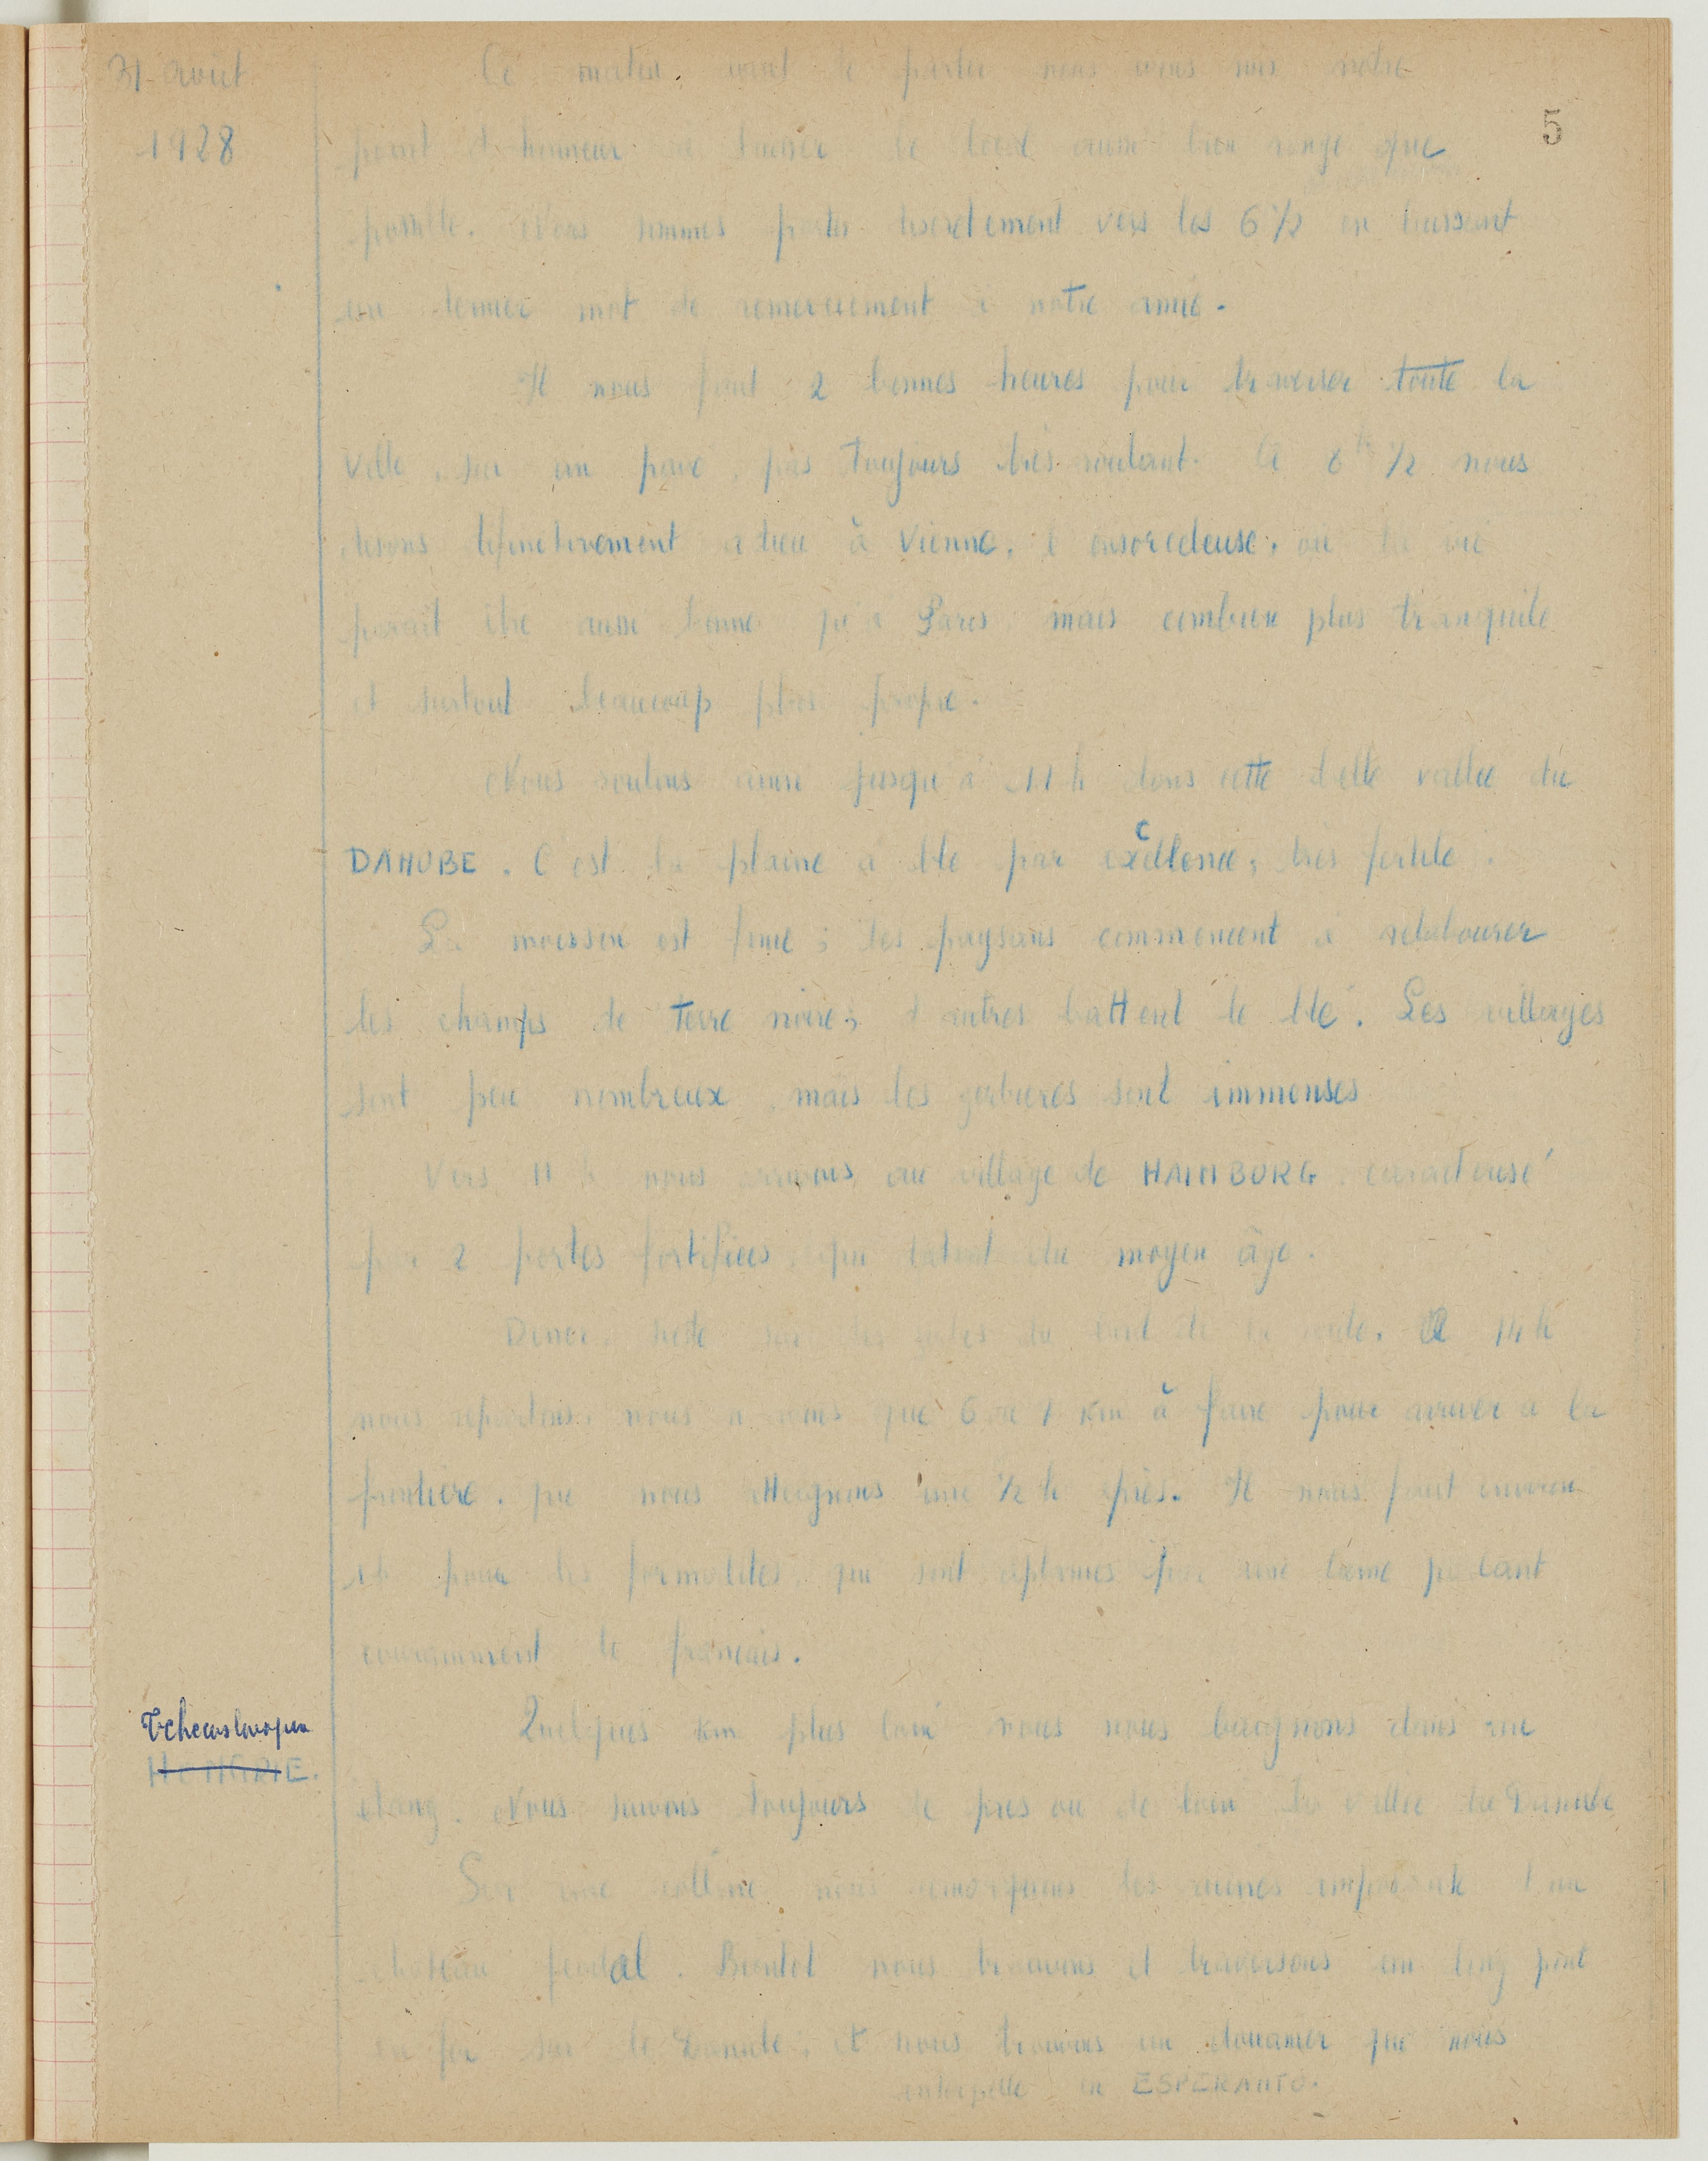 31 août
1928
5
Ce matin, avant de partir nous avons mis notre
point d'honneur à laisser le local aussi bien rangé que
possible. Nous sommes partis discrètement vers les 6 ½ en laissant
un dernier mot de remerciement à notre amie.
Il nous faut 2 bonnes heures pour traverser toute la
ville, sur un pavé, pas toujours très roulant. A 8 h ½ nous
disons définitivement adieu à Vienne, l'ensorceleuse, où la vie
parait être aussi bonne qu'à Paris mais combien plus tranquile
et surtout beaucoup plus propre.
Nous roulons ainsi jusqu'à 11 h dans cette belle vallée du
DANUBE. C'est la plaine à blé par excellence, très fertile.
La moisson est finie ; les paysans commencent à relabourer
les champs de terre noire ; d'autres battent le blé. Les villages
sont peu nombreux, mais les gerbières sont immenses
Vers 11 h nous arrivons au village de HAINBURG caractérisé
par 2 portes fortifiées qui datent du moyen âge.
Diner, sieste sur les du bord de la route. A 14 h
nous repartons, nous n'avons que 6 ou 7 km à faire pour arriver à la
frontière, que nous atteignons une ½ h après. Il nous faut environ
1 h pour les formalités, qui sont aplanies par une dame parlant
couramment le français.
Tchécoslovaquie
HONGRIE.
Quelques km plus loin nous nous baignons dans un
étang. Nous suivons toujours de près ou de loin la vallée du Danube
Sur une colline nous remarquons les ruines imposantes d'un
château féodal. Bientôt nous trouvons et traversons un long pont
en fer sur le Danube, et nous trouvons un douanier qui nous
interpelle en ESPERANTO.